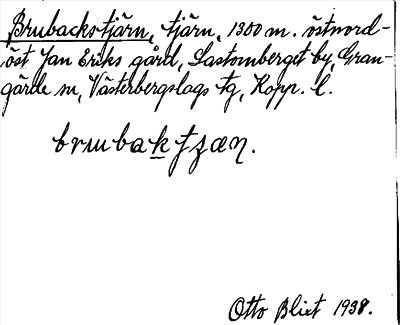 Brubackstjärn, tjärn, 1300 m. östnord-
öst Jan Eriks gård, Sastomberget by, Gran-
gärde sn, Västerbergslags tg, Kopp. l.
brubaktjæṇ.
Otto Blixt 1938.